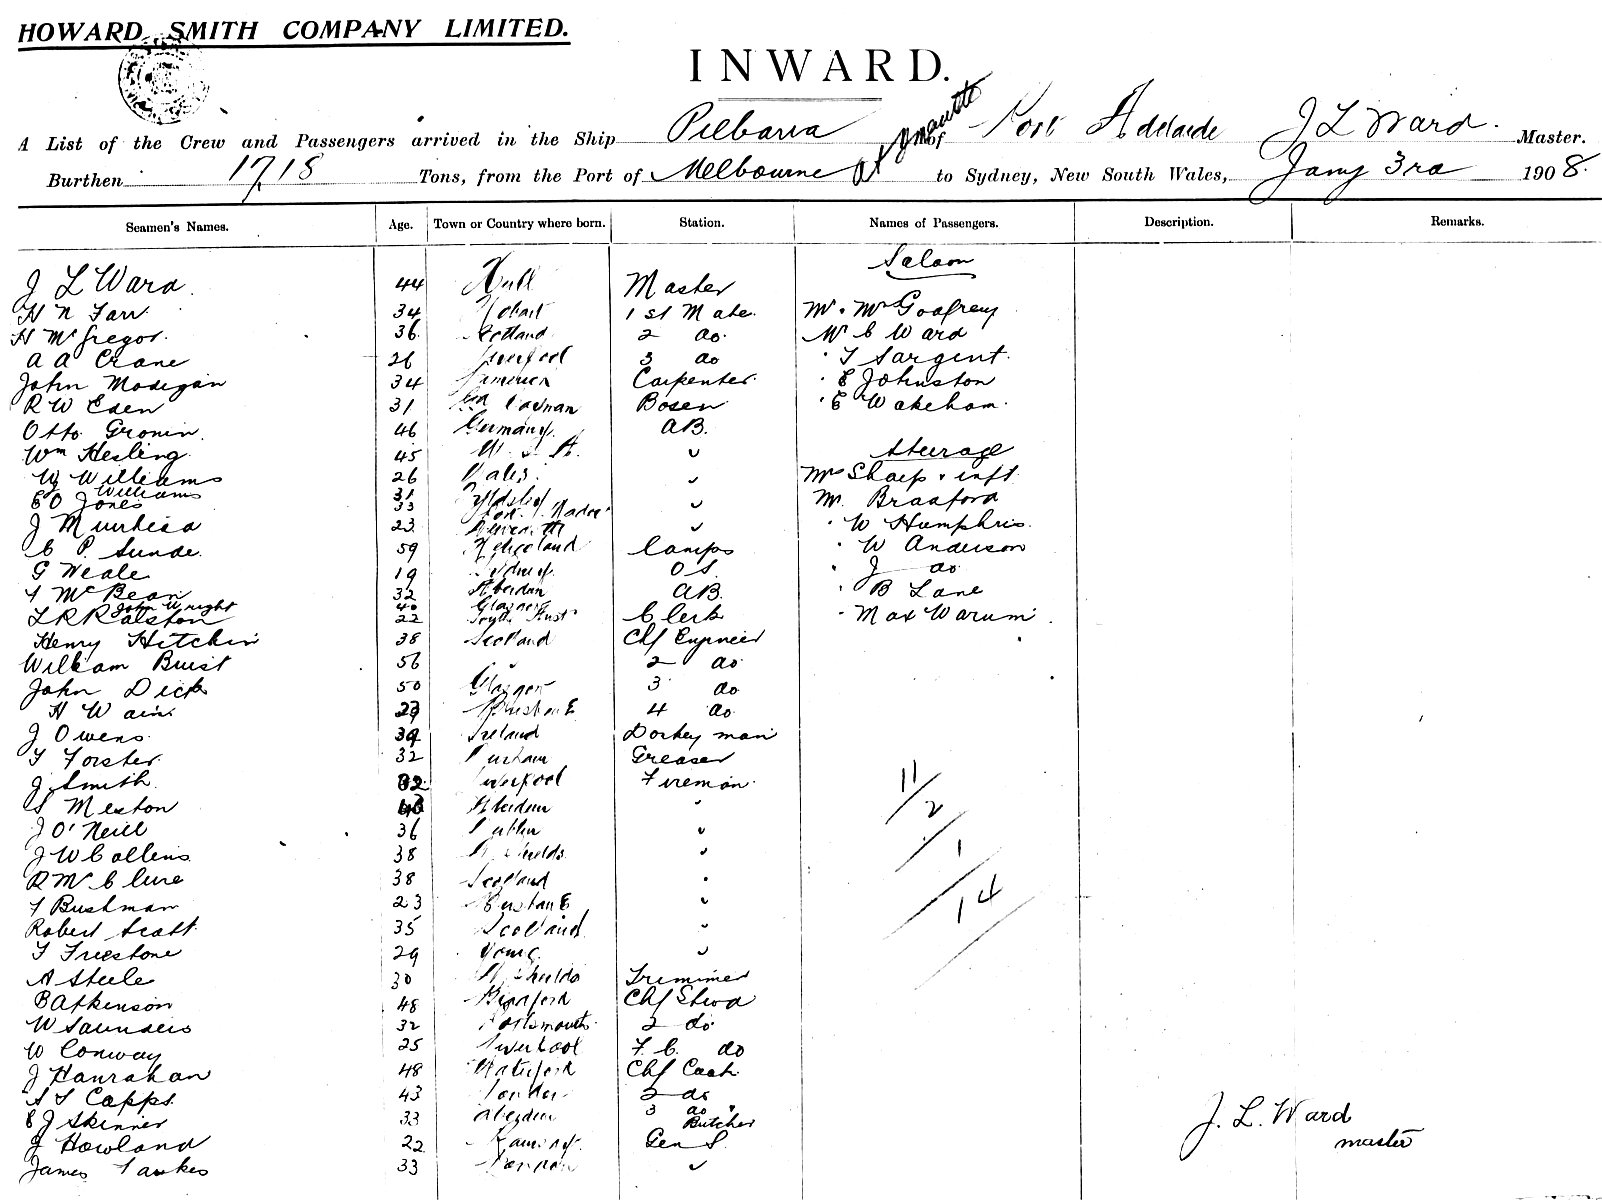 HOWARD SMITH COMPANY LIMITED.
INWARD.
A List of the Crew and Passengers arrived in the Ship Pilbarra of Port Adelaide J L Ward. Master.
Burthen 1718 Tons, from the Port of Melbourne to Sydney, New South Wales, Jany 3rd 1908.
Seamen's Names. Age. Town or Country where born. Station. Names of Passengers. Description. Remarks.
Saloon
J L Ward. 44 Hull Master
H N Farr 34 Hobart 1st Mate. Mr. Mrs Godfrey
H McGregor. 36 Scotland 2 do. Mr C Ward
A A Crane 26 Liverpool 3 do T Sargent.
John Madigan 34 America Carpenter. E Johnston
R W Eden 31 Bosen E Wakeham.
Otto Gronin. 46 Germany. AB.
Wm Hesling. 45 Steerage
W Williams 26 Wales. Mrs Sharp & inft.
Williams 31
E O Jones 33 Mr. Bradford
J Murchisa 23 W Humphris.
C P. Sunde. 59 Heligoland Lamps W Anderson
G Weale 19 Sydney. OS. J do
McBean 32 Aberdeen AB. B Lane
John Wright 40 Glasgow
L R Ralston 22 Clerk Max Warum.
Henry Hitchin 38 Scotland Chf Engineer
William Buist 56 " 2 do
John Dick 50 Glasgow 3 do
H Wain. Brisbane 4 do
J Owens. 39 Ireland Donkey man
T Forster. 32 Durham Greaser
J Smith. 32 Liverpool Fireman. 11/
S Meston Aberdeen " 2
J O'Neill 36 Dublin "
J W Collens 38 N. Shields. " / 1
R McClure 38 Scotland "
T Bushman 23 Brisbane " / 14
Robert Scott. 35 Scotland. "
T Freestone 29 Young. "
A Steele 30 N. Shields Trimmer
B Atkinson 48 Bradford Chf Stwd
W Saunders 32 Portsmouth. 2 do
W Conway 25 Liverpool F. C. do
J Hanrahan 48 Waterford Chf Cook
S T Capps. 43 London. 2 do
E J Skinner 33 Aberdeen 3 do & Butcher J. L. Ward
J Howland 22 Gen S. master
James 33 London